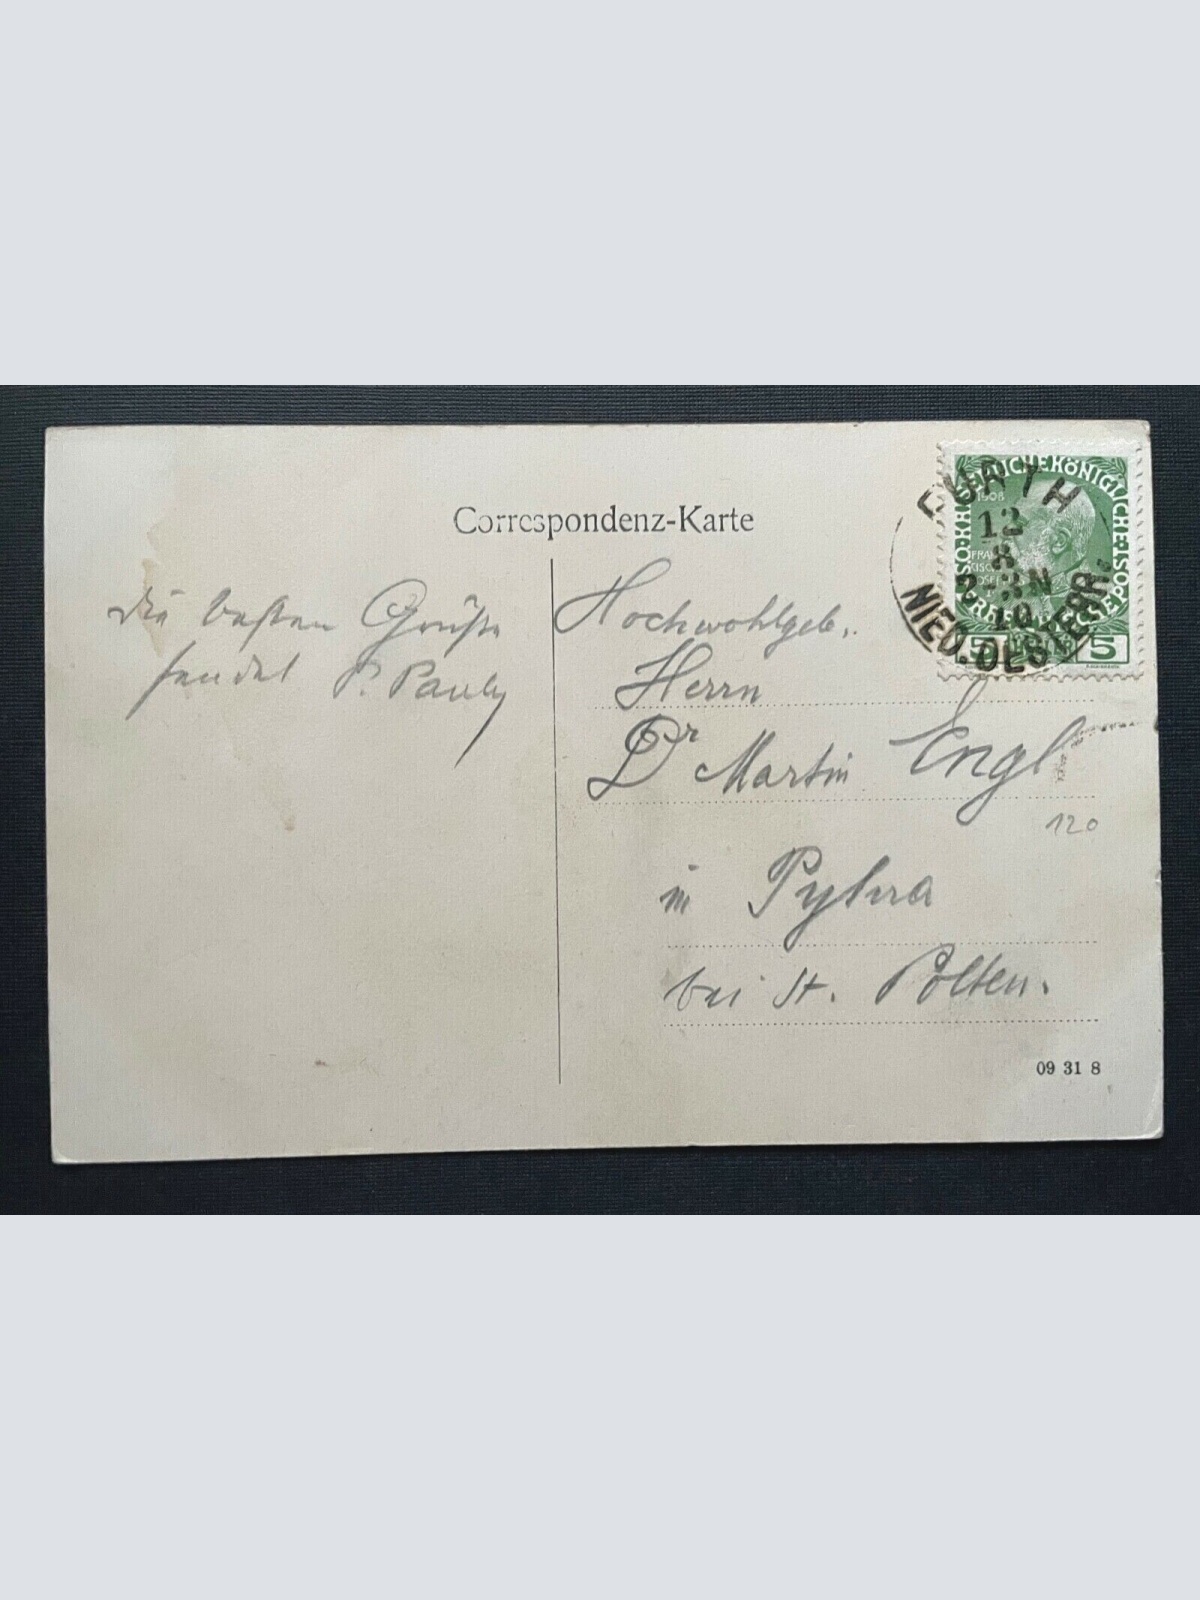 Correspondenz-Karte
Die besten Grüße
sendet P. Pauly
Hochwohlgeb.
Herrn
Dr Martin Engl
in Pyhra
bei St. Pölten.
120
09 31 8
FURTH
12
8
10
NIED. OESTERR.
KAISERLICHE KÖNIGLICHE
1908
5 5